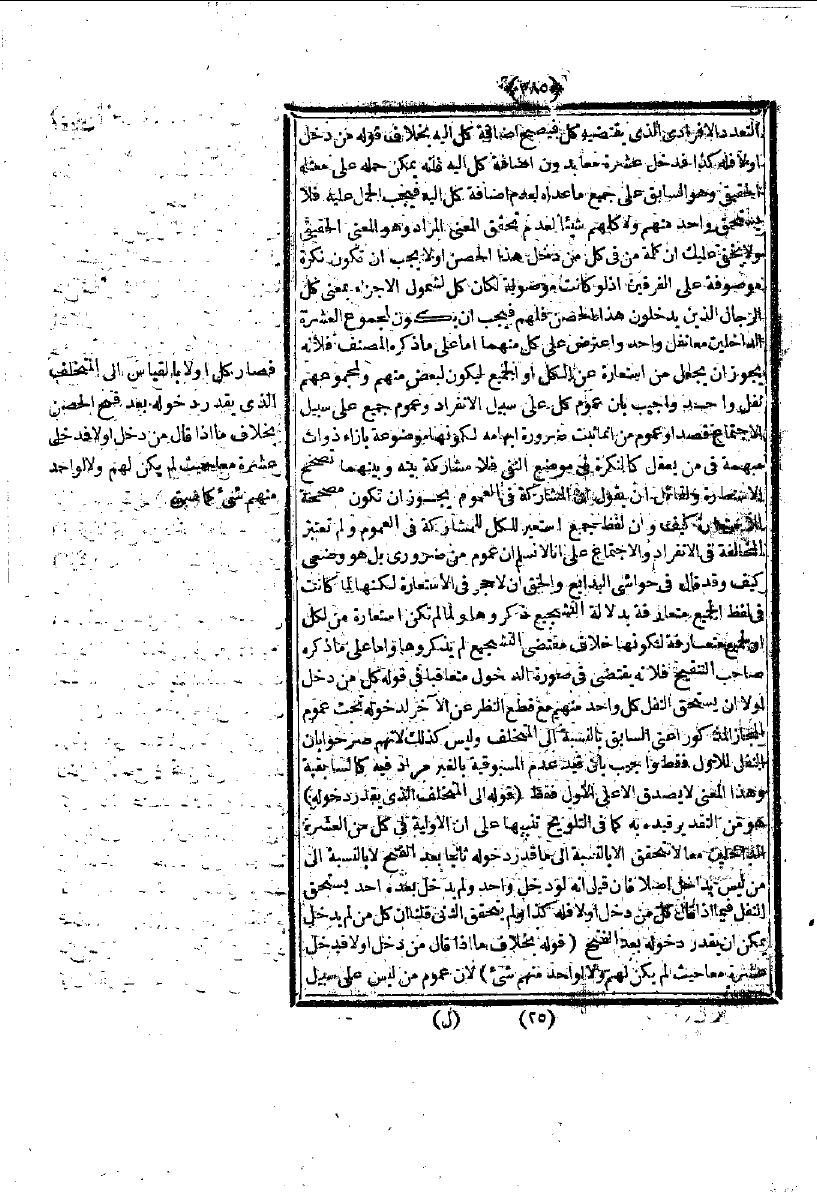 ﴿٣٨٥﴾
التعدد الافرادى الذى يقتضيه كل فيصح اضافة كل اليه بخلاف قوله من دخل
اولا فله كذا فدخل عشرة معا بدون اضافة كل اليه فانه يمكن حمله على معناه
الحقيقى وهو السابق على جميع ماعداه لعدم اضافة كل اليه فيجب الحمل عليه فلا
يستحق واحد منهم ولا كلهم شيئا لعدم تحقق المعنى المراد وهو المعنى الحقيقى
ولا يخفى عليك ان كلمة من فى كل من دخل هذا الحصن اولا يجب ان تكون نكرة
موصوفة على الفرقين اذ لو كانت موصولة لكان كل لشمول الاجزاء بمعنى كل
الرجال الذين يدخلون هذا الحصن فلهم فيجب ان يكون لمجموع العشرة
الداخلين معا نفل واحد واعترض على كل منهما اما على ماذكره المصنف فلانه
يجوز ان يجعل من استعارة عن الكل او الجميع ليكون لبعض منهم ولمجموعهم
نفل واحد واجيب بان عموم كل على سبيل الانفراد وعموم جميع على سبيل
الاجتماع قصدا وعموم من انما يثبت ضرورة ابهامه لكونها موضوعة بازاء ذوات
مبهمة فى من يعقل كالنكرة فى موضع النفى فلا مشاركة بينه وبينهما تصحح
الاستعارة ولقائل ان يقول ان المشاركة فى العموم يجوز ان تكون مصححة
للاستعارة كيف وان لفظ جميع استعير للكل للمشاركة فى العموم ولم تعتبر
المخالفة فى الانفراد والاجتماع على انا لا نسلم ان عموم من ضرورى بل هو وضعى
كيف وقد قال فى حواشى البدايع والحق ان لا حجر فى الاستعارة لكنها لما كانت
فى لفظ الجميع متعارفة بدلالة التشجيع ذكروها ولما لم تكن استعارة من لكل
او لجميع متعارفة لكونها خلاف مقتضى التشجيع لم يذكروها واما على ماذكره
صاحب التنقيح فلانه يقتضى فى صورة الدخول متعاقبا فى قوله كل من دخل
اولا ان يستحق النفل كل واحد منهم مع قطع النظر عن الآخر لدخوله تحت عموم
المجاز المذكور اعنى السابق بالنسبة الى المتخلف وليس كذلك لانهم صرحوا بان
النفل للاول فقط واجيب بان قيد عدم المسبوقية بالغير مراد فيه كالسابقية
وهذا المعنى لا يصدق الا على الاول فقط (قوله الى المتخلف الذى يقدر دخوله)
هو من التقدير قيده به كما فى التلويح تنبيها على ان الاولية فى كل من العشرة
الداخلين معا لا تتحقق الا بالنسبة الى ما قدر دخوله ثانيا بعد الفتح لا بالنسبة الى
من ليس بداخل اصلا فان قيل انه لو دخل واحد ولم يدخل بعده احد يستحق
النفل فيما اذا قال كل من دخل اولا فله كذا ولم يتحقق الثانى قلنا ان كل من لم يدخل
يمكن ان يقدر دخوله بعد الفتح (قوله بخلاف ما اذا قال من دخل اولا فدخل
عشرة معا حيث لم يكن لهم ولا لواحد منهم شئ) لان عموم من ليس على سبيل
فصار كل اولا بالقياس الى المتخلف
الذى يقدر دخوله بعد فتح الحصن
بخلاف ما اذا قال من دخل اولا فدخل
عشرة معا حيث لم يكن لهم ولا لواحد
منهم شئ كما
(٢٥) (ل)